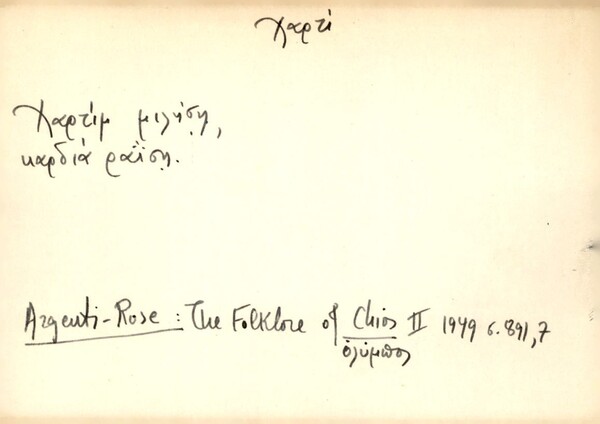 Χαρτί
Χαρτίμ μιλήσῃ,
καρδιά ραΐσῃ.
Argenti-Rose : The Folklore of Chios II 1949 σ. 891,7
Ὀλύμποι